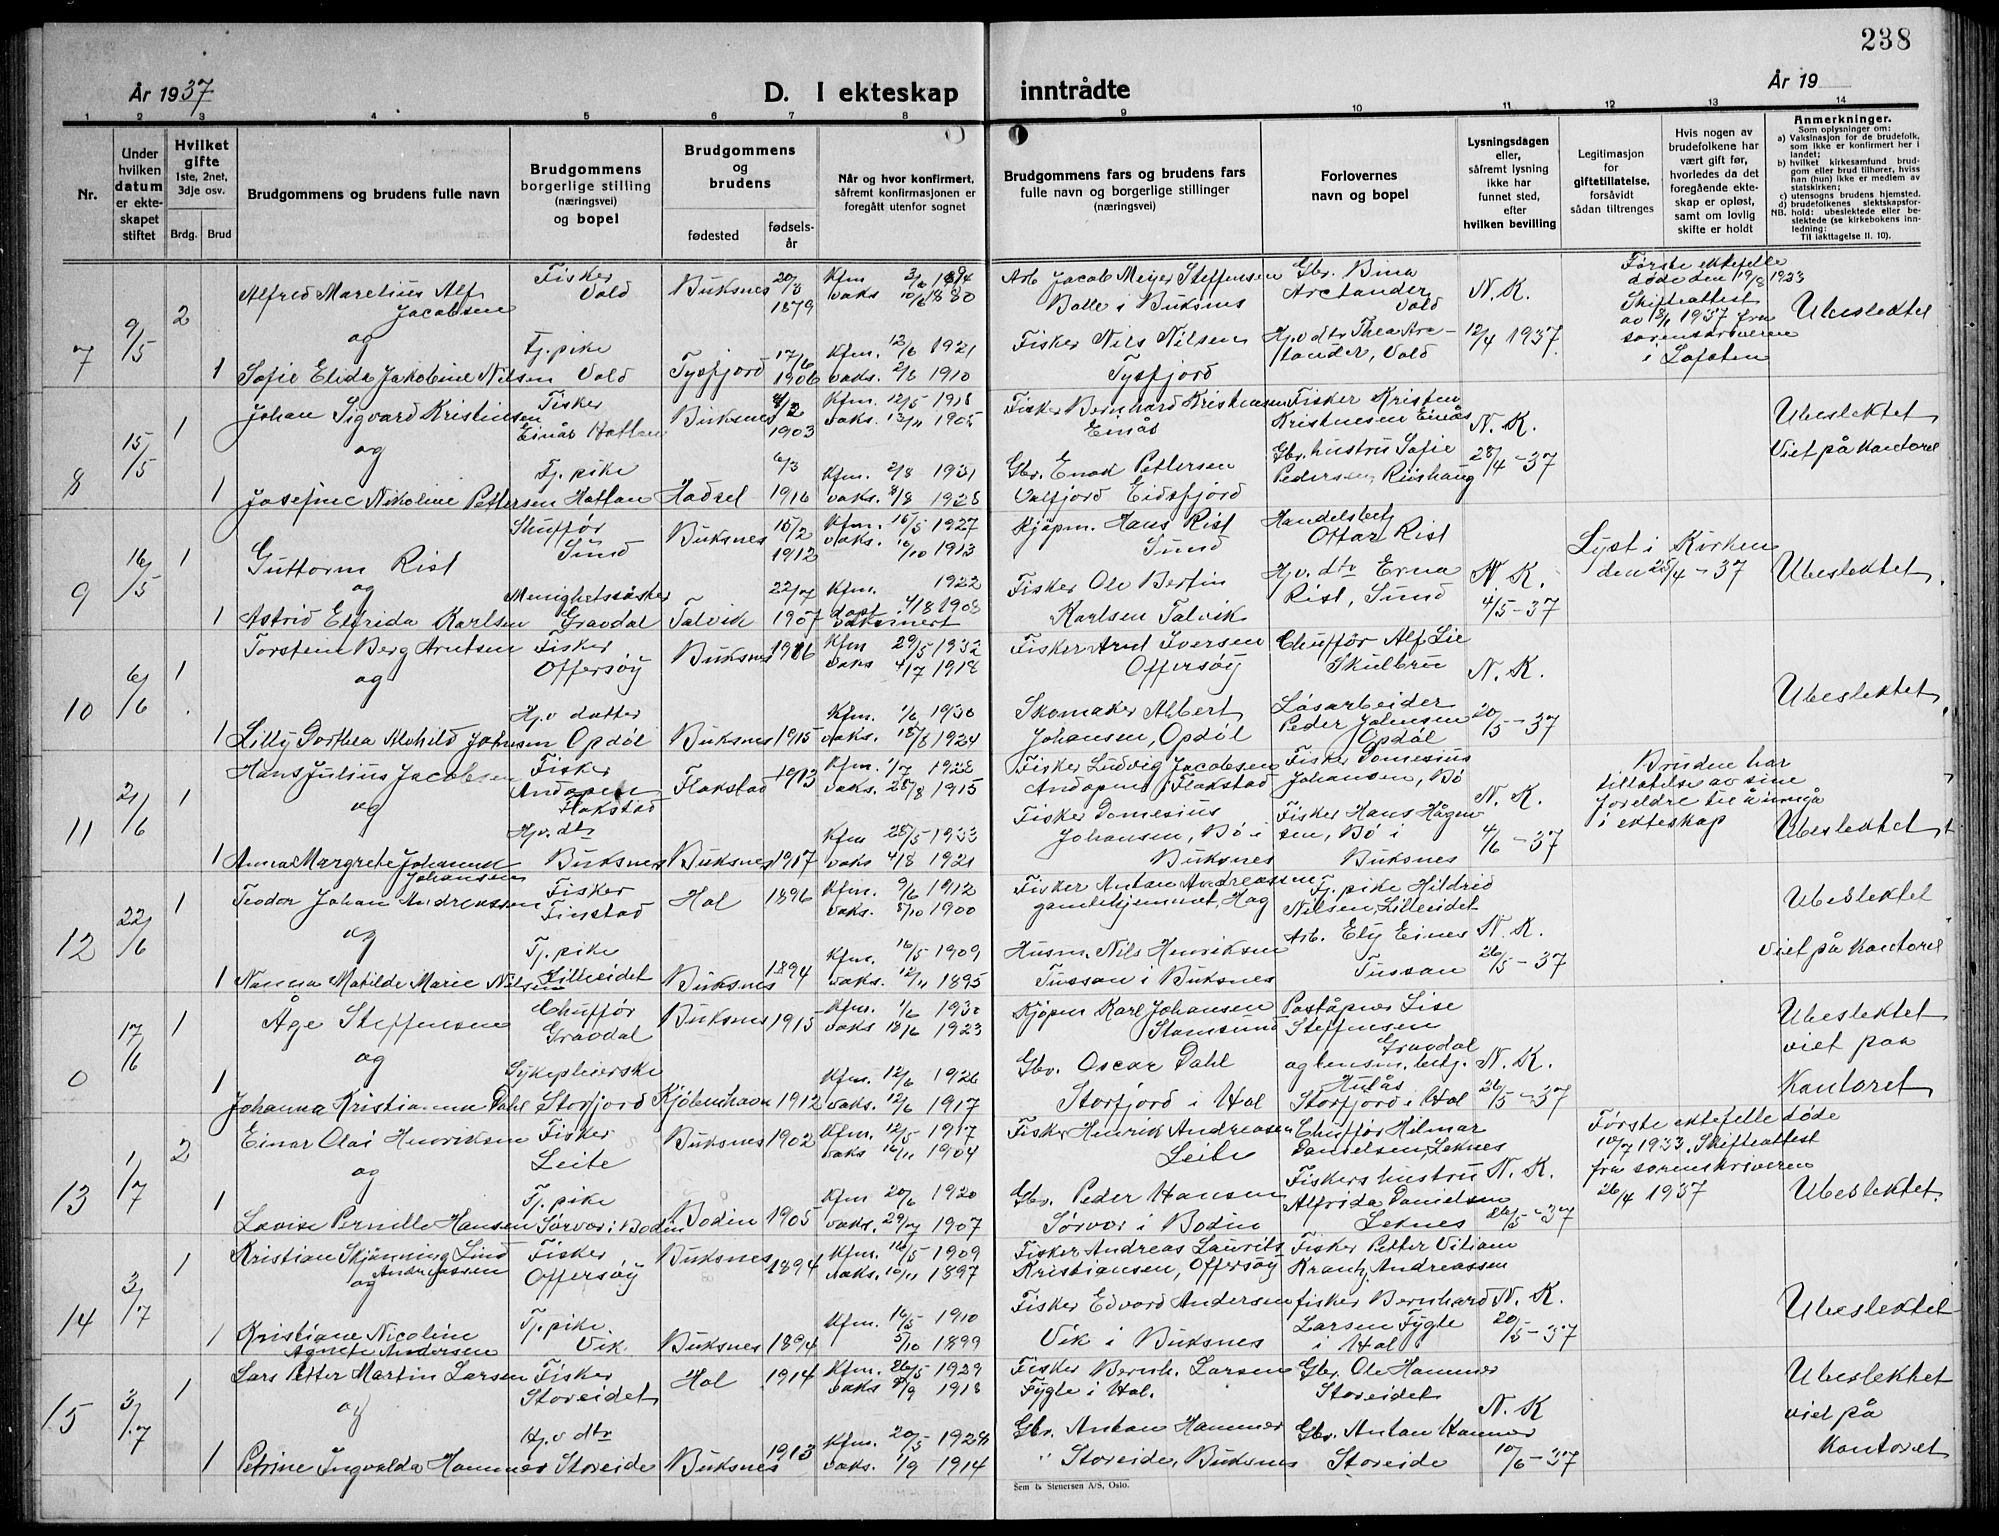 238
År 1937
D. I ekteskap inntrådte
År 19
1 2 3 4 5 6 7 8 9 10 11 12 13 14
Nr.
Under hvilken datum er ekteskapet stiftet
Hvilket gifte 1ste, 2net, 3dje osv.
Brdg. Brud
Brudgommens og brudens fulle navn
Brudgommens borgerlige stilling (næringsvei) og bopel
Brudgommens og brudens
fødested
fødselsår
Når og hvor konfirmert, såfremt konfirmasjonen er foregått utenfor sognet
Brudgommens fars og brudens fars fulle navn og borgerlige stillinger (næringsvei)
Forlovernes navn og bopel
Lysningsdagen eller, såfremt lysning ikke har funnet sted, efter hvilken bevilling
Legitimasjon for giftetillatelse, forsåvidt sådan tiltrenges
Hvis nogen av brudefolkene har vært gift før, hvorledes da det foregående ekteskap er opløst, samt om lovlig skifte er holdt
Anmerkninger.
Som oplysninger om:
a) Vaksinasjon for de brudefolk, som ikke er konfirmert her i landet;
b) hvilket kirkesamfund brudgom eller brud tilhører, hviss han (hun) ikke er medlem av statskirken;
c) utensogns brudens hjemsted.
d) brudefolkenes slektskapsforhold: ubeslektede eller beslektede (se kirkebokens innledning:
NB. Til iakttagelse II. 10).
7 9/5 2 Alfred Marelius Alf Jacobsen
Fisker Vold Buksnes 20/3 1879
Kfm 3/6 1894
vaks 10/6 1880
Arb. Jacob Meyer Steffensen
Balle i Buksnes
Gbr. Bina Arctander Vold
N. K.
Første ektefelle døde den 19/8 1923
Skifteattest av 18/1 1937 fra sorenskriveren i Lofoten
Ubeslektet
og
1 Sofie Elida Jakobine Nilsen
Tj. pike Vold Tysfjord 17/6 1906
Kfm. 12/6 1921
vaks. 2/6 1910
Fisker Nils Nilsen
Tysfjord
Hjv dtr Thea Arctander, Vold
12/4 1937
8 15/5 1 Johan Sigvard Kristensen
Fisker Einås Hattan Buksnes 4/2 1903
Kfm. 12/5 1918
vaks. 13/11 1905
Fisker Bernhard Kristensen
Einås
Fisker Kristen Kristensen Einås
N. K.
Ubeslektet
Viet på kontoret
og
1 Josefine Nikoline Pettersen
Tj. pike Hattan Hadsel 6/3 1916
Kfm. 2/8 1931
vaks. 8/8 1928
Gbr. Enok Pettersen
Valfjord Eidsfjord
Gbr. hustru Sofie Pedersen Riishaug
28/4 - 37
9 16/5 1 Guttorm Rist
Shuffør Sund Buksnes 15/2 1912
Kfm. 15/5 1927
vaks. 10/10 1913
Kjøpm. Hans Rist
Sund
Handelsbetj Ottar Rist
Lyst i Kirken den 25/4 - 37
N. K.
Ubeslektet
og
1 Astrid Elfrida Karlsen
Menighetssøster Gravdal Talvik 22/7 1907
Kfm. 1922
døpt 4/8 1908
vaksinert
Fisker Ole Bertin
Karlsen Talvik
Hjv. dtr Erna Rist, Sund
4/5 - 37
10 6/6 1 Torstein Berg Arntsen
Fisker Offersøy Buksnes 1916
Kfm 29/5 1932
vaks 4/7 1918
Fisker Arnt Iversen
Offersøy
Chuffør Alf Lie
Skulbru
N. K.
Ubeslektet
og
1 Lilly Dorthea Alohild Johansen
Hjv datter Opdøl Buksnes 1915
Kfm. 1/6 1930
vaks. 18/8 1924
Skomaker Albert
Johansen, Opdøl
Løsarbeider Peder Johensen Opdøl
20/5 - 37
11 21/6 1 Hans Julius Jacobsen
Fisker Andopen Flakstad Flakstad 1913
Kfm. 1/7 1928
vaks. 28/8 1915
Fisker Ludvig Jacobsen
Andopen i Flakstad
Fisker Domesius Johansen, Bø
N. K.
Bruden har tillatelse av sine foreldre til å inngå i ekteskap
Ubeslektet
og
1 Anna Margrete Johanne Johansen
Hjv. dtr Buksnes Buksnes 1917
Kfm 28/5 1933
vaks 4/8 1921
Fisker Domesius
Johansen, Bø i
Buksnes
Fisker Hans Hågensen, Bø i Buksnes
4/6 - 37
12 22/6 1 Teodor Johan Andreassen
Fisker Finstad Hol 1896
Kfm. 9/6 1912
vaks. 8/10 1900
Fisker Anton Andreassen
gamlehjemmet, Hag
Tj. pike Hildrid Nilsen, Lilleidet
N. K.
Ubeslektet
viet på kontoret
og
1 Nanna Matilde Marie Nilsen
Tj. pike Lilleeidet Buksnes 1894
Kfm. 16/5 1909
vaks. 12/11 1895
Husm. Nils Henriksen
Tussan i Buksnes
Arb. Ely Eines Tussan
26/5 - 37
0 17/6 1 Åge Steffensen
Chuffør Gravdal Buksnes 1915
Kfm. 1/6 1930
vaks 18/6 1923
Kjøpm Karl Johansen
Stamsund
Poståpner Lise Steffensen Gravdal
N. K.
Ubeslektet
viet paa
Kontoret
og
1 Johanna Kristianna Dahl
Sykepleierske Storfjord Kjøbenhavn 1912
Kfm. 12/6 1926
vaks. 12/6 1917
Gbr. Oscar Dahl
Storfjord i Hol
og lensm. betj. Hulås Storfjord i Hol
26/5 - 37
13 1/7 2 Einar Olai Henriksen
Fisker Leite Buksnes 1902
Kfm. 12/5 1917
vaks 16/11 1904
Fisker Henrik Andreasen
Leite
Chuffør Hilmar Danielsen, Leknes
N. K.
Første ektefelle døde 10/7 1933. Skifteattest fra sorenskriveren 26/4 1937
Ubeslektet.
og
1 Lovise Pernille Hansen
Tj. pike Sørvær i Bodin Bodin 1905
Kfm 20/6 1920
vaks. 29/7 1907
Gbr. Peder Hansen
Sørvær i Bodin
Fiskers hustru Alfrida Danielsen Leknes
26/5 - 37
14 3/7 1 Kristian Skjønning Lind Andreassen
Fisker Offersøy Buksnes 1894
Kfm. 16/5 1909
vaks. 10/11 1897
Fisker Andreas Laurits
Kristiansen, Offersøy
Fisker Petter Viliam Krantz Andreassen
N. K.
Ubeslektet
og
1 Kristiane Nicoline Agnete Andersen
Tj. pike Vik Buksnes 1894
Kfm. 16/5 1910
5/10 1899
Fisker Edvard Andersen
Vik i Buksnes
fisker Bernhard Larsen Fygle i Hol
20/5 - 37
15 3/7 1 Lars Petter Martin Larsen
Fisker Storeidet Hol 1914
Kfm. 26/5 1929
vaks 8/9 1918
Fisker Bernh. Larsen
Fygle i Hol.
Gbr. Ole Hammer Storeidet
N. K
Ubeslektet
viet på
Kontoret
og
1 Petrine Ingvalda Hammer
Hjv dtr Storeide Buksnes 1913
Kfm. 20/5 1928
vaks. 1/9 1914
Gbr. Anton Hammer
Storeide, Buksnes
Gbr. Anton Hammer Storeide
10/6 - 37
Sem & Stenersen A/S, Oslo.